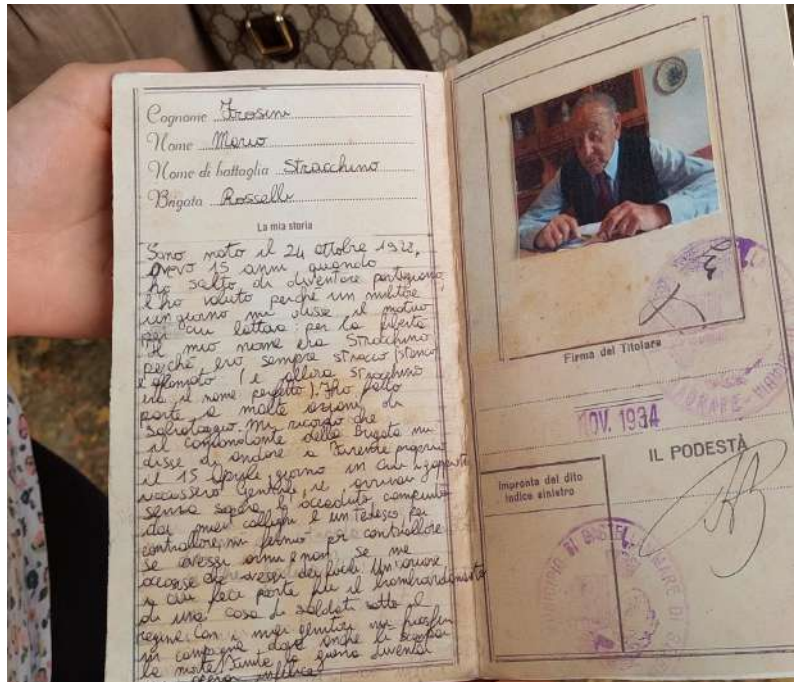 Cognome Frosini
Nome Mario
Nome di battaglia Stracchino
Brigata Rosselli
La mia storia
Sono nato il 24 ottobre 1928,
avevo 15 anni quando
ho scelto di diventare partigiano,
l'ho voluto perché un militare
un giorno mi disse il motivo
per cui lottava: per la libertà
Il mio nome era Stracchino
perché ero sempre stracco (stanco)
e affamato (e allora stracchino
era il nome perfetto). Ho fatto
parte a molte azioni di
sabotaggio. Mi ricordo che
il comandante della Brigata mi
disse di andare a Firenze proprio
il 15 aprile, giorno in cui i gappisti
uccisero Gentile, io arrivai
senza sapere l'accaduto compiuto
dai miei colleghi e un tedesco
controllore mi fermò per controllare
se avessi armi e non se
accorse che avessi dei fucili. Un'azione
a cui feci parte fu il bombardamento
di una casa di soldati sotto il
regime. Con i miei genitori
in campagna dopo anche la scampai
la morte. Finita la guerra diventai
Firma del Titolare
NOV. 1934
IL PODESTÀ
Impronta del dito
indice sinistro